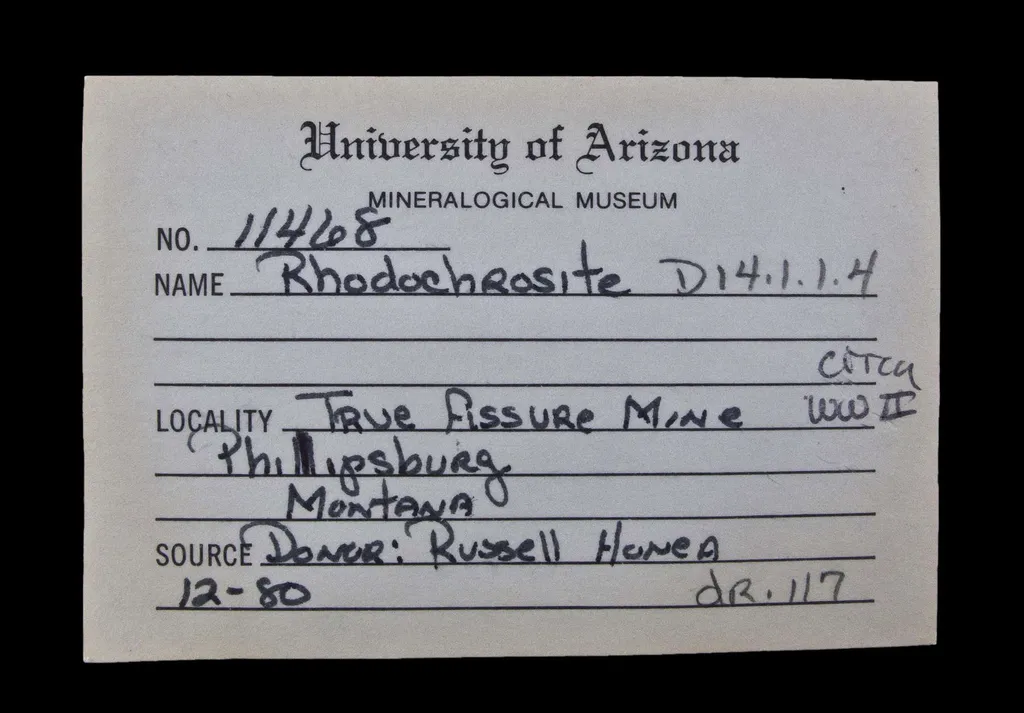 University of Arizona
MINERALOGICAL MUSEUM
NO. 11468
NAME Rhodochrosite D14.1.1.4
CIRCA
LOCALITY True Fissure Mine WW II
Phillipsburg
Montana
SOURCE Donor: Russell Honea
12-80 dR. 117